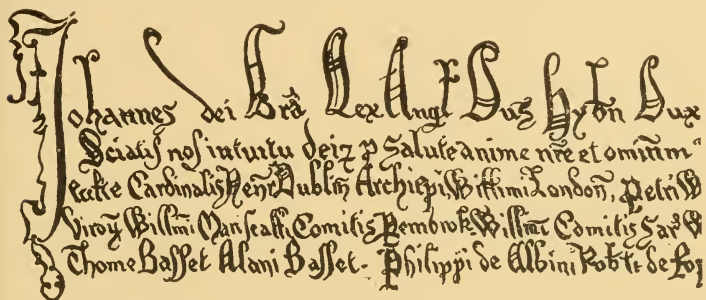 Johannes dei Grã Rex Angł Dus hybn Dux
Sciatis nos intuitu dei ⁊ p salute anime nre et omnium
eccłe Cardinalis henr Dublin Archiepi Willmi London, Petri W
viroꝝ Willmi Marscalli Comitis Pembrok Willmi Comitis Sar W
Thome Basset Alani Basset. Philippi de Albini Robti de Rop